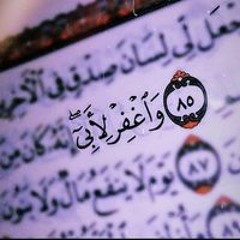 جْعَل لِّى لِسَانَ صِدْقٍ فِى ٱلْأَخِرِ
٨٥ وَٱغْفِرْ لِأَبِىٓ ۖ إِنَّهُۥ كَانَ مِنَ
٨٧ يَوْمَ لَا يَنفَعُ مَالٌ وَلَا بَنُونَ
٨٩